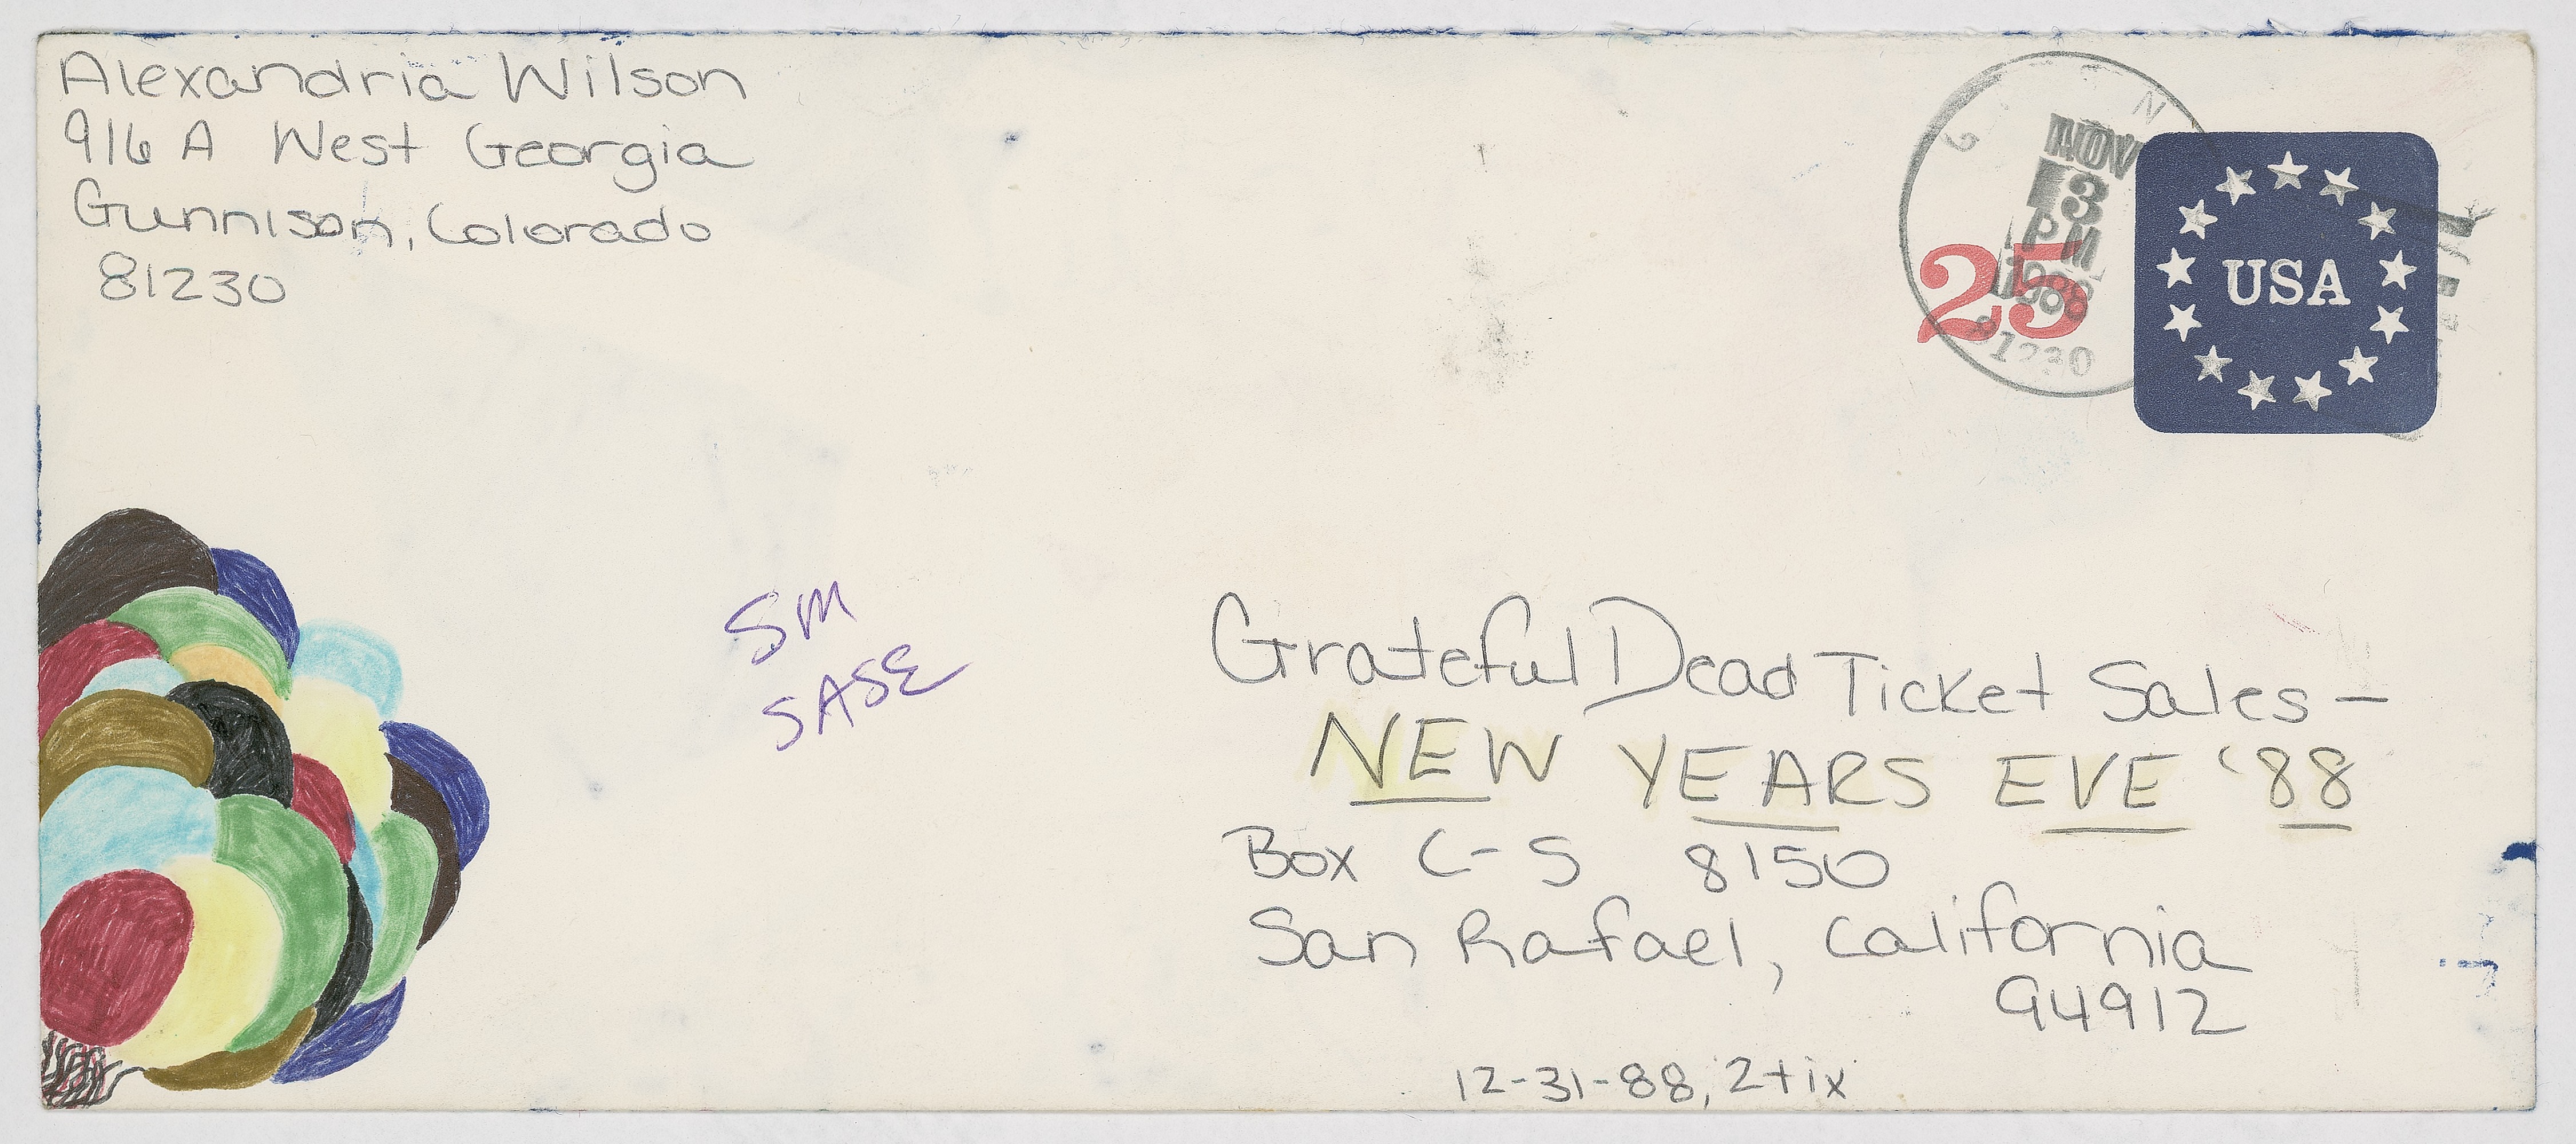 Alexandria Wilson
916 A West Georgia
Gunnison, Colorado
81230
NOV
3
PM
1988
81230
25
USA
SM
SASE
Grateful Dead Ticket Sales -
NEW YEARS EVE '88
Box C-S 8150
San Rafael, California
94912
12-31-88, 2 tix